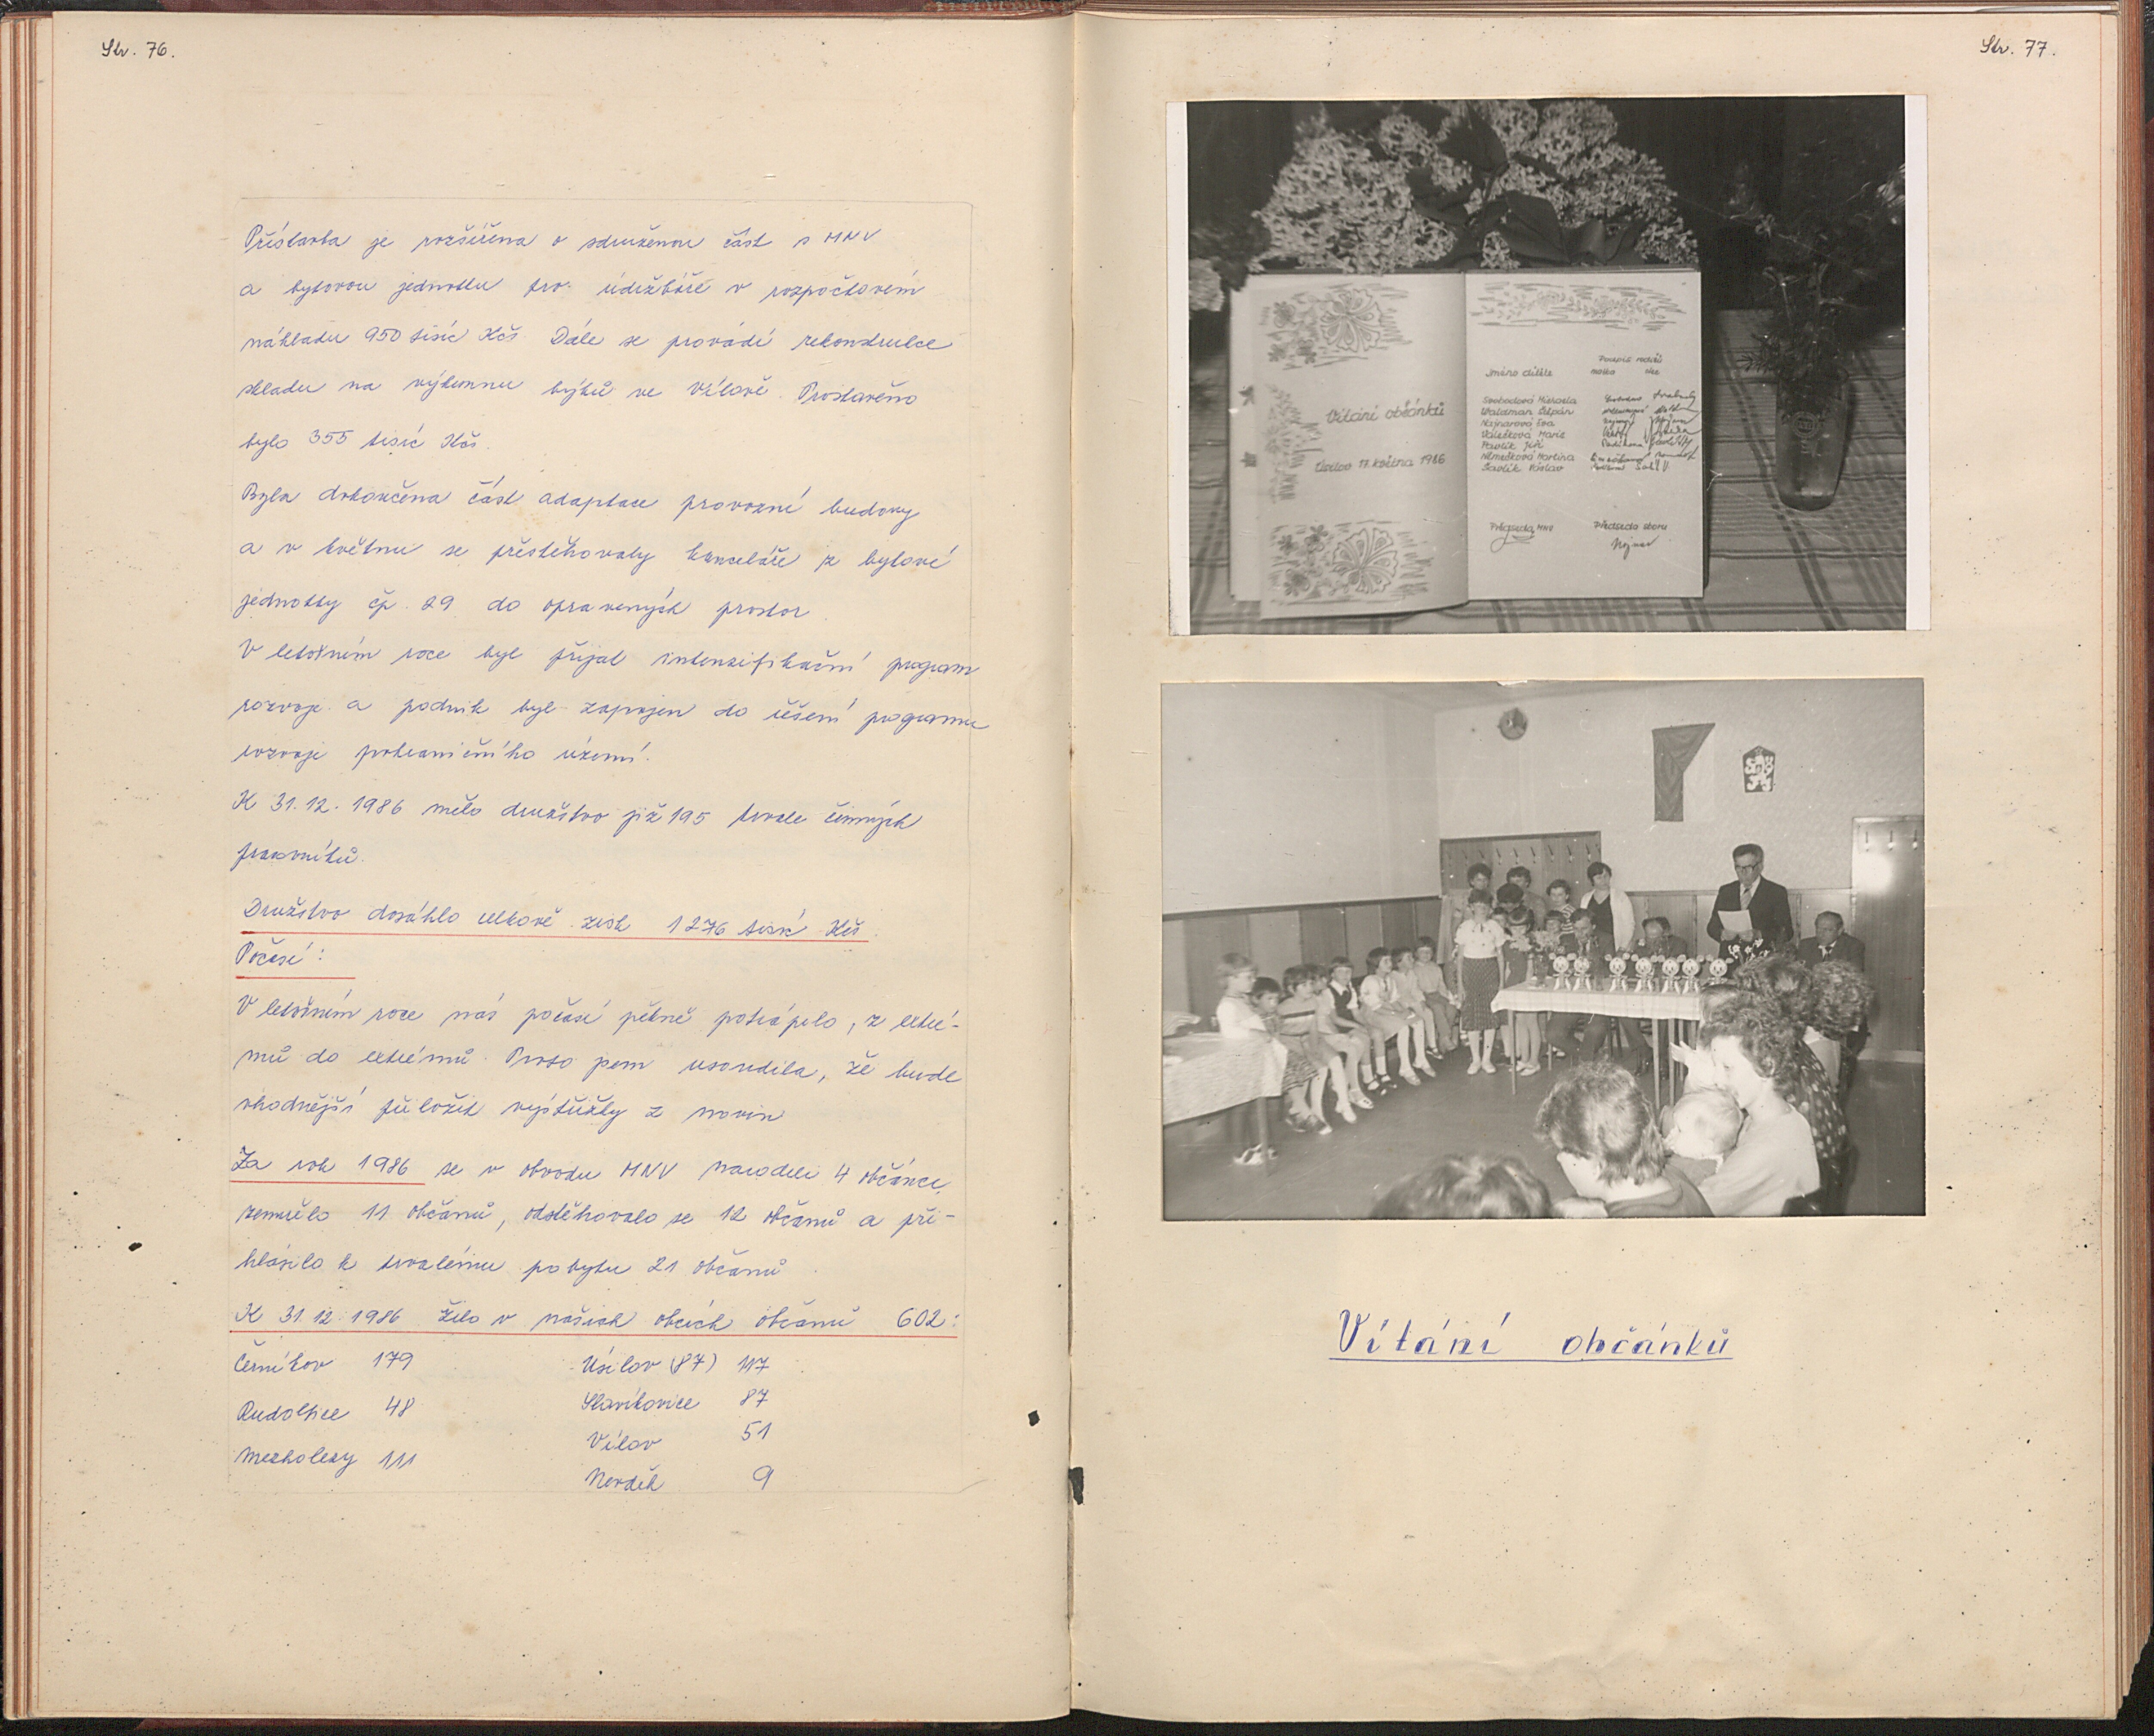 Str. 76.
Přístavba je rozšířena o sdruženou část s MNV
a bytovou jednotku pro údržbáře v rozpočtovém
nákladu 950 tisíc Kčs. Dále se provádí rekonstrukce
skladu na výkrmnu býků ve Vílově. Prostavěno
bylo 355 tisíc Kčs.
Byla dokončena část adaptace provozní budovy
a v květnu se přestěhovaly kanceláře z bytové
jednotky čp. 29 do opravených prostor.
V letošním roce byl přijat intenzifikační program
rozvoje a podnik byl zapojen do řešení programu
rozvoje pohraničního území.
K 31.12.1986 mělo družstvo již 195 trvale činných
pracovníků.
Družstvo dosáhlo celkově zisk 1276 tisíc Kčs.
Počasí:
V letošním roce nás počasí pěkně potrápilo, z extré-
mů do extrémů. Proto jsem usoudila, že bude
vhodnější přiložit výstřižky z novin
Za rok 1986 se v obvodu MNV narodili 4 občánci,
zemřelo 11 občanů, odstěhovalo se 12 občanů a při-
hlásilo k trvalému pobytu 21 občanů.
K 31.12.1986 žilo v našich obcích občanů 602:
Černíkov 179 Úsilov (87) 117
Rudoltice 48 Slavíkovice 87
Mezholezy 111 Vílov 51
Nevděk 9
Str. 77.
Vítání občánků
Úsilov 17. května 1986
Podpis rodičů
Jméno dítěte matka otec
Svobodová Michaela
Waldman Štěpán
Najmanová Eva
Valešková Marie
Pavlík Jiří
Němečková Martina
Šavlík Václav
Předseda MNV Předseda sboru
Vítání občánků